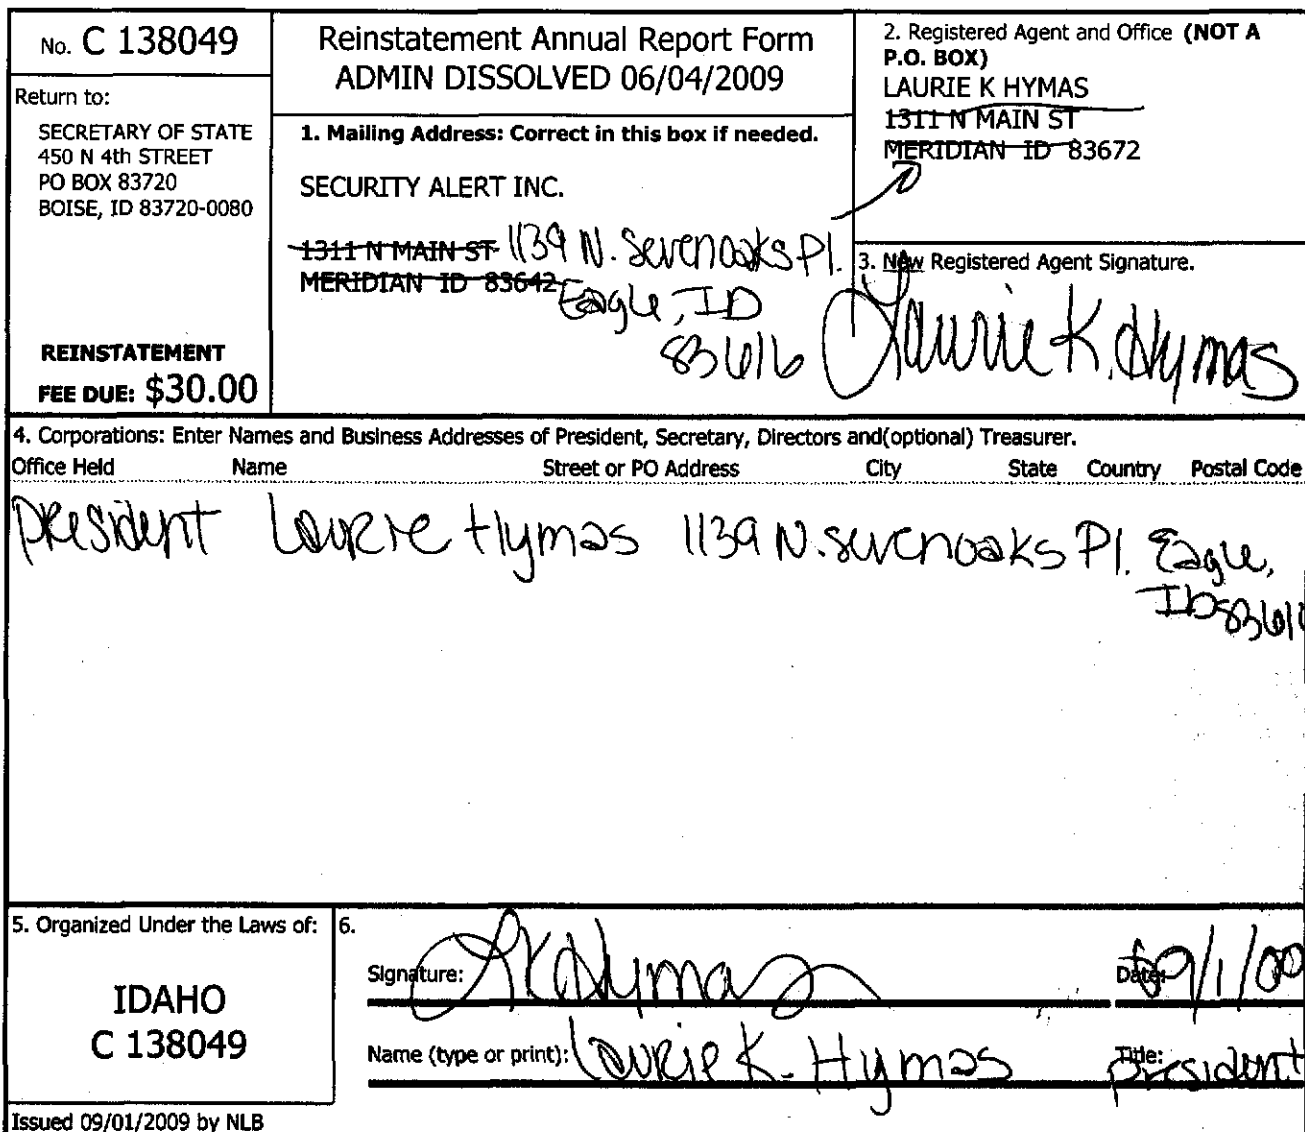 No. C 138049
Return to:
SECRETARY OF STATE
450 N 4th STREET
PO BOX 83720
BOISE, ID 83720-0080
REINSTATEMENT
FEE DUE: $30.00
Reinstatement Annual Report Form
ADMIN DISSOLVED 06/04/2009
1. Mailing Address: Correct in this box if needed.
SECURITY ALERT INC.
1311 N MAIN ST 1139 N. Sevenoaks Pl.
MERIDIAN ID 83642 Eagle, ID
83616
2. Registered Agent and Office (NOT A
P.O. BOX)
LAURIE K HYMAS
1311 N MAIN ST
MERIDIAN ID 83672
3. New Registered Agent Signature.
Laurie K. Hymas
4. Corporations: Enter Names and Business Addresses of President, Secretary, Directors and(optional) Treasurer.
Office Held Name Street or PO Address City State Country Postal Code
president Laurie Hymas 1139 N. sevenoaks Pl. Eagle,
ID 83616
5. Organized Under the Laws of:
IDAHO
C 138049
6.
Signature: LK Hymas Date: 09/1/09
Name (type or print): Laurie K. Hymas Title: president
Issued 09/01/2009 by NLB